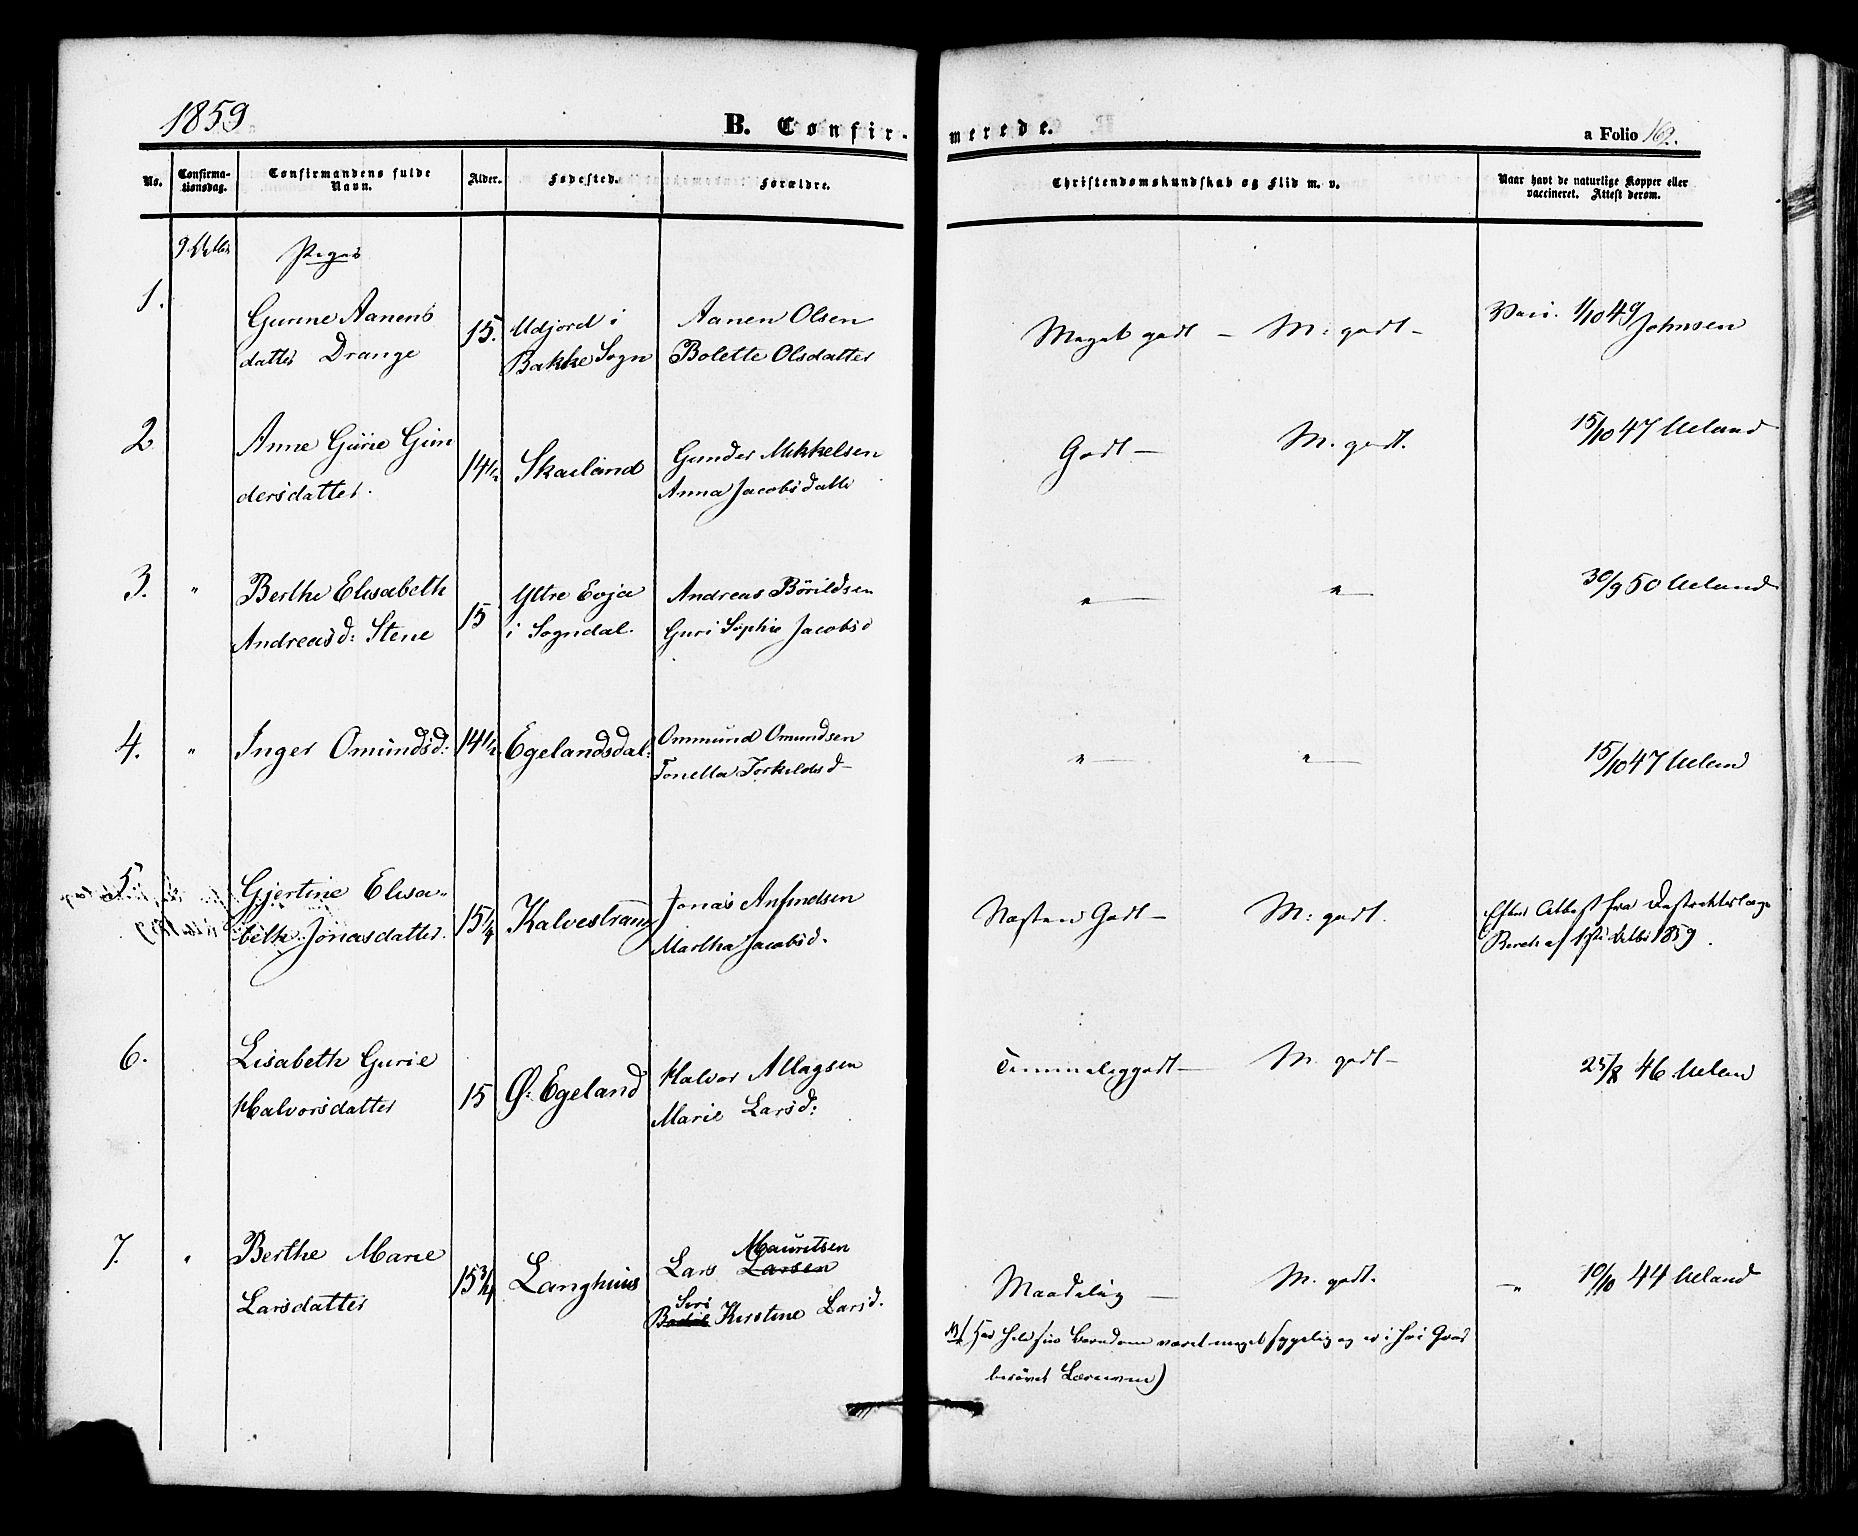 1859
B. Confirmerede.
a Folio 162.
No.
Confirmationsdag.
Confirmandens fulde Navn.
Alder.
Fødested.
Forældre.
Christendomskundskab og Flid m. v.
Naar havt de naturlige Kopper eller vaccineret. Attest derom.
Piger
1.
Gurine Aanens
datter Drange
15.
Udjord i
Bakke Sogn
Aanen Olsen
Bolette Olsdatter
Meget godt – M: godt –
Vacc. 1/10 49 Johnsen
2
Anne Gurie Gun
dersdatter.
14 1/2
Skailand
Gunder Mikkelsen
Anna Jacobsdatte
Godt – M. godt.
15/10 47 Ueland
3. "
Berthe Elisabeth
Andreasd: Stene
15
Yttre Evja
i Sogndal.
Andreas Börildsen
Guri Sophie Jacobsd
" "
30/9 50 Ueland
4. "
Inger Omundsd:
14 1/2
Egelandsdal:
Ommund Omundsen
Tonella Torkildsd –
" "
15/10 47 Ueland
5.
Gjertine Elisa-
beth Jonasdatter.
15 1/4
Kalvestrand
Jonas Anfindsen
Martha Jacobsd.
Næsten Godt – M: godt.
Efter Attest fra Distriktslæge
Berch af 1ste Octbr 1859.
6.
Lisabeth Gurie
Halvorsdatter
15
Ø: Egeland
Halvor Allagsen
Marie Larsd:
Temmelig godt – M. godt –
25/8 46 Ueland
7. "
Berthe Marie
Larsdatter
15 3/4
Langhuus
Mauritsen
Lars Larsen
Siri
Bodil Kirstine Larsd.
Maadelig – M. godt.
" 10/10 44 Ueland
Har hele sin Barndom været meget sygelig og er i høi Grad
berövet Læreevne)